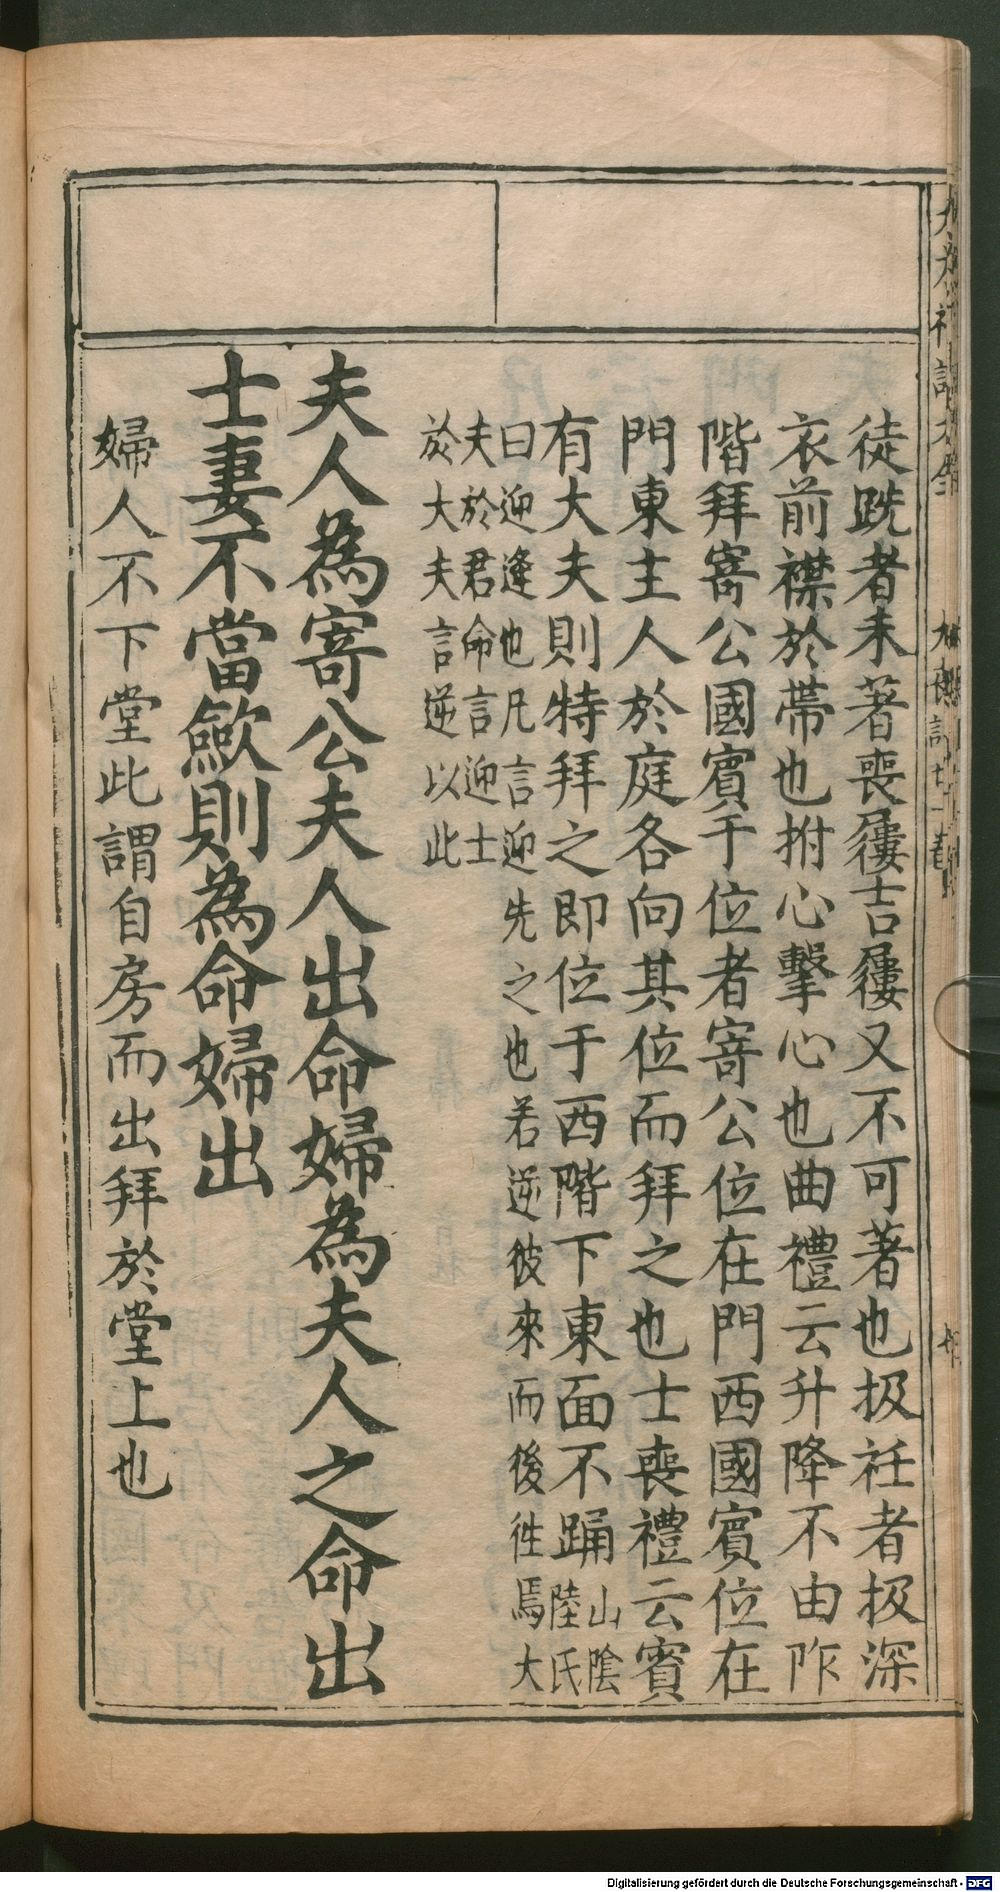 徒跣者未著喪屨吉屨又不可著也扱衽者扱深
衣前襟於帶也拊心擊心也曲禮云升降不由阼
階拜寄公國賓于位者寄公位在門西國賓位在
門東主人於庭各向其位而拜之也士喪禮云賓
有大夫則特拜之即位于西階下東面不踊山陰
陸氏
曰迎逢也凡言迎先之也若逆彼來而後徃焉大
夫於君命言迎士
於大夫言逆以此
夫人為寄公夫人出命婦為夫人之命出
士妻不當歛則為命婦出
婦人不下堂此謂自房而出拜於堂上也
Digitalisierung gefördert durch die Deutsche Forschungsgemeinschaft - DFG